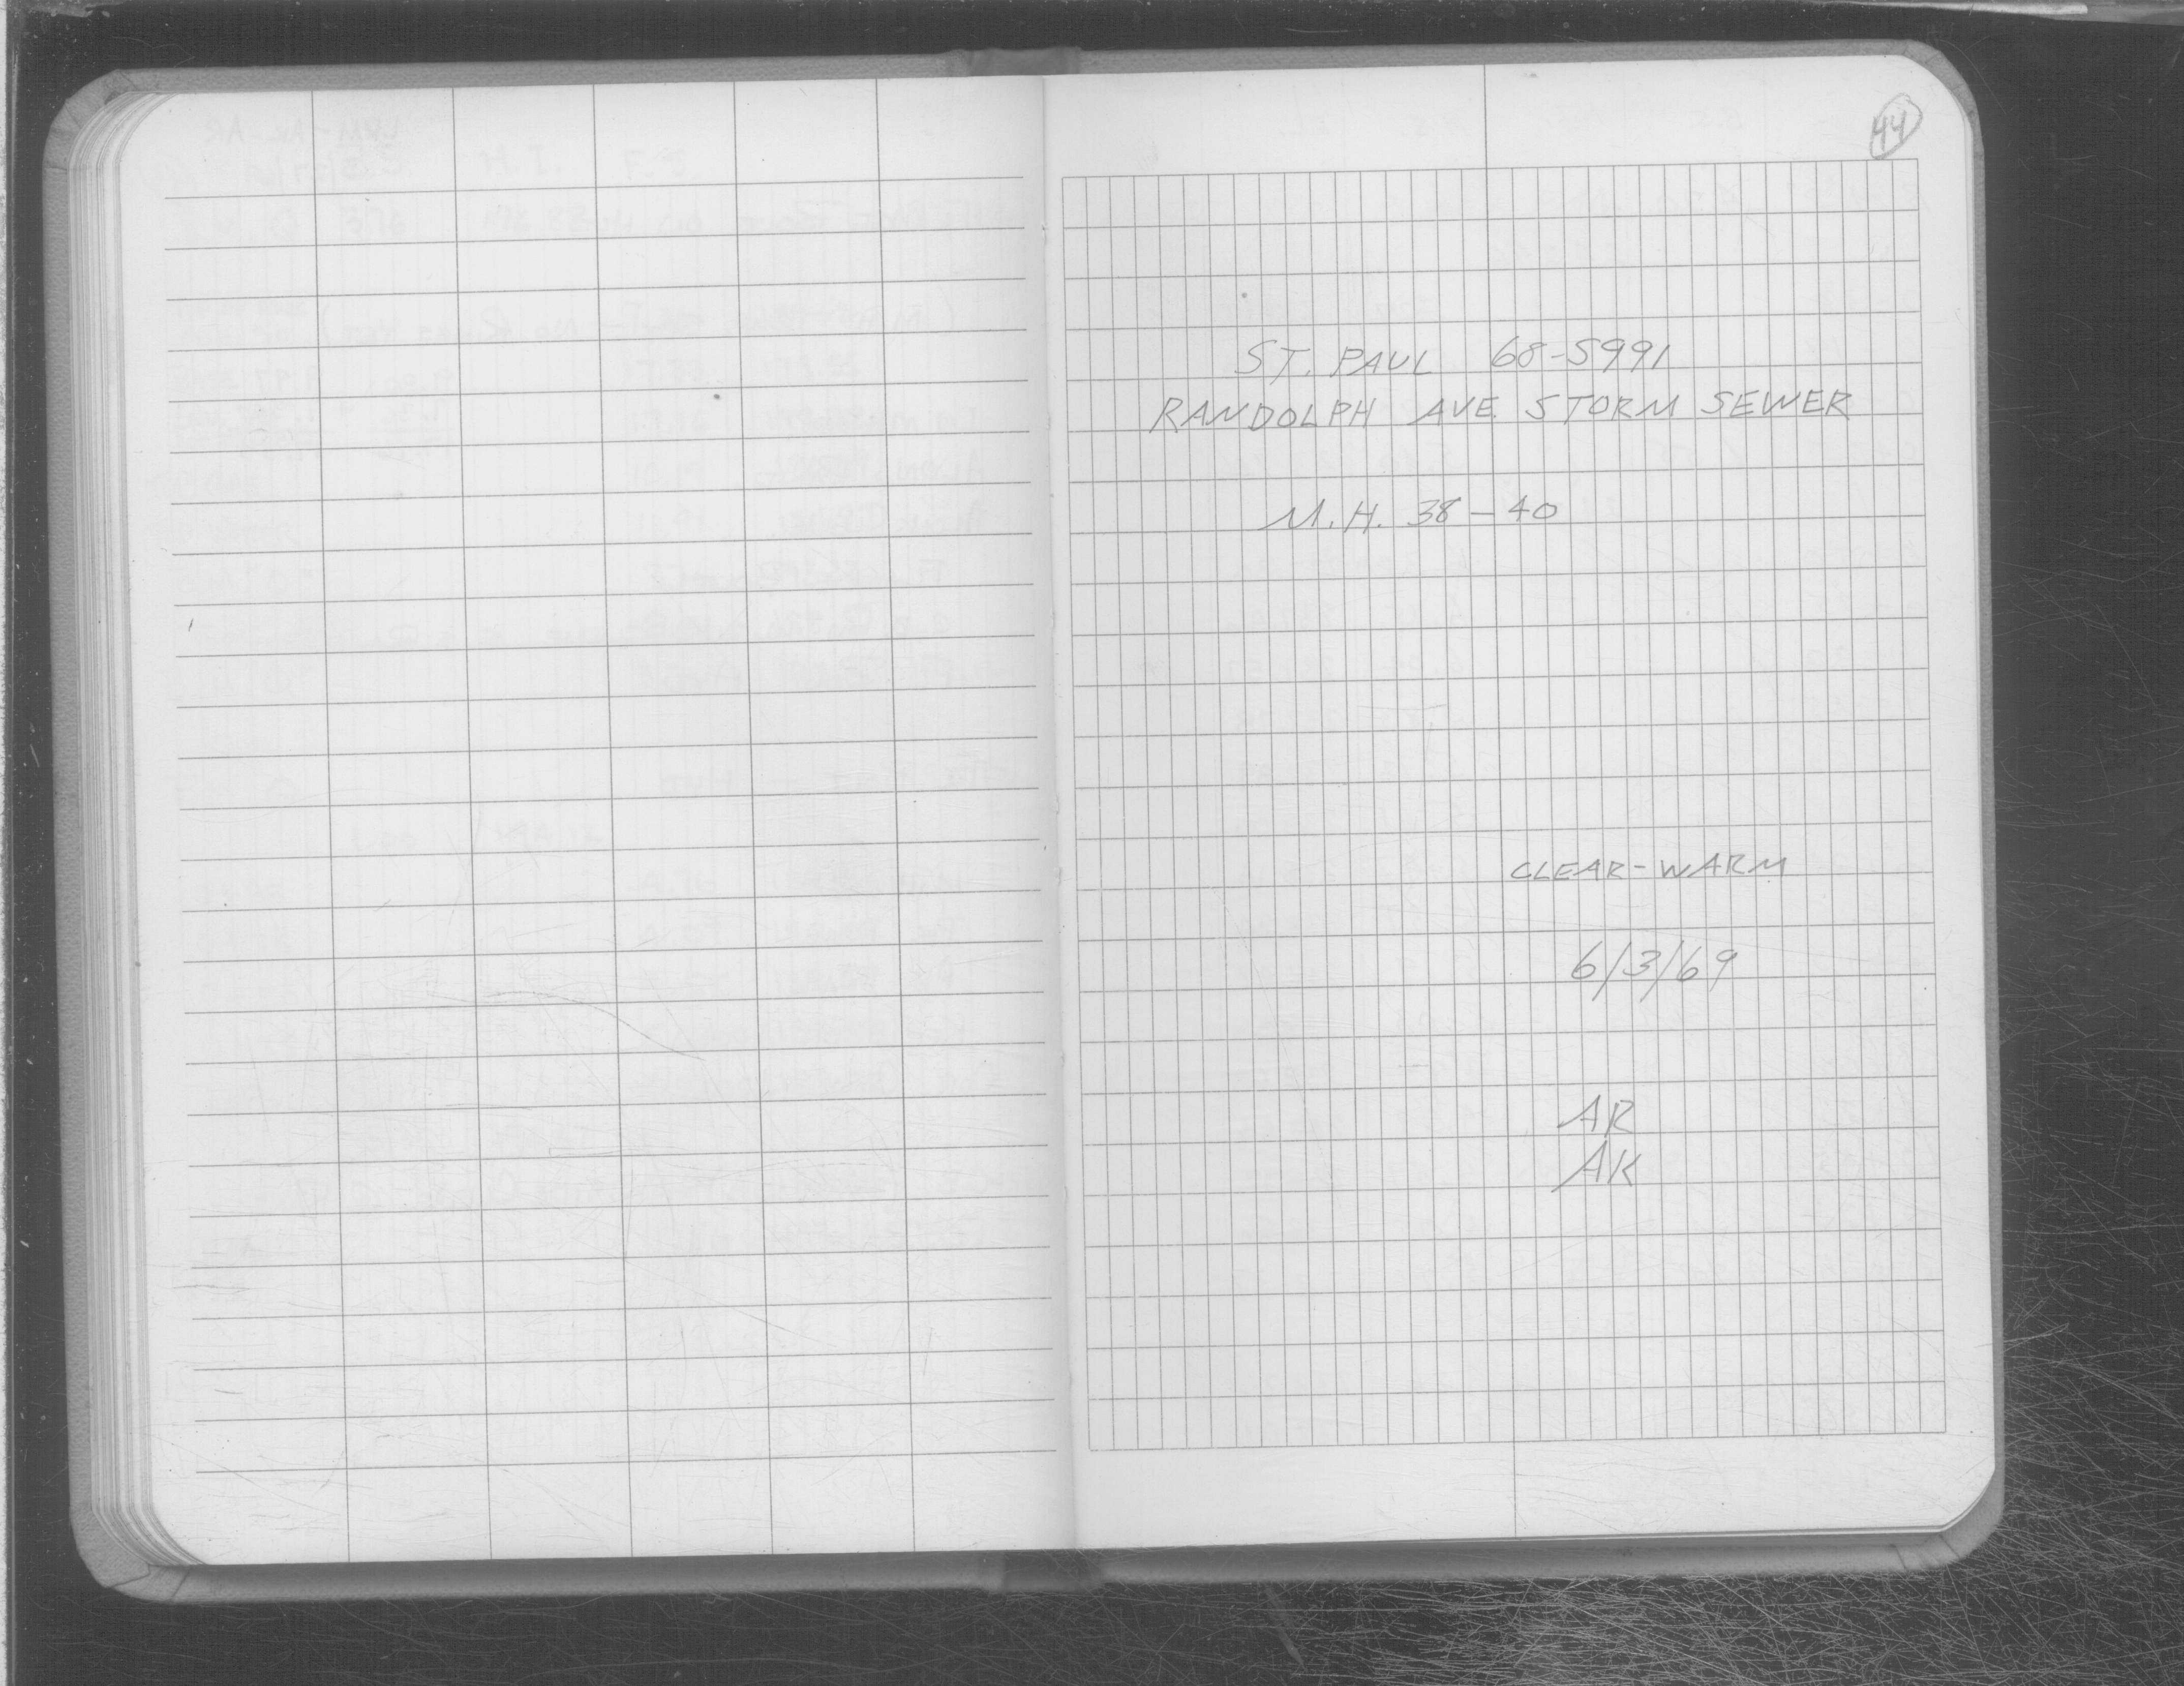 44
ST. PAUL 68-5991
RANDOLPH AVE. STORM SEWER
M.H. 38-40
CLEAR-WARM
6/3/69
AR
AK